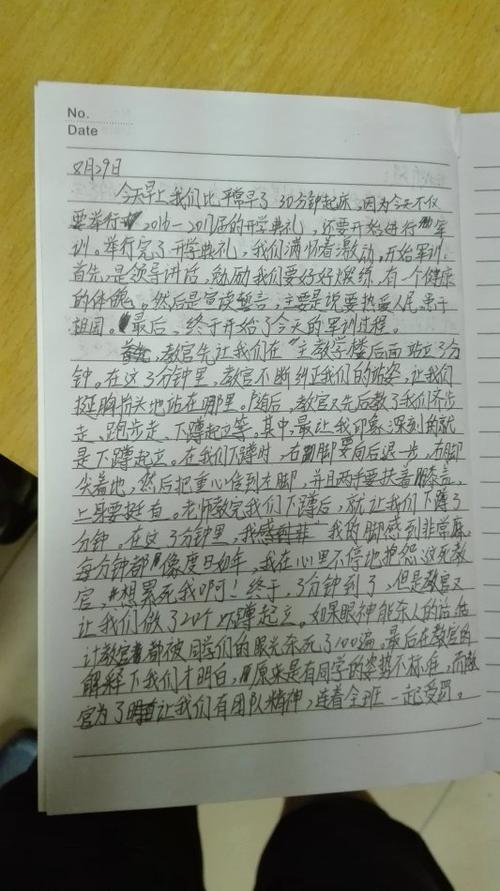 No.
Date
8月29日
今天早上我们比平常早了30分钟起床,因为今天不仅
要举行2016—2017届的开学典礼,还要开始进行军
训。举行完了开学典礼,我们满怀着激动,开始军训。
首先,是领导讲话,勉励我们要好好锻练,有一个健康
的体魄。然后是宣读誓言,主要是说要热爱人民,忠于
祖国。最后,终于开始了今天的军训过程。
教官先让我们在"主教学楼后面站立3分
钟。在这3分钟里,教官不断纠正我们的站姿,让我们
挺胸抬头地站在哪里。随后,教官又先后教了我们齐步
走、跑步走、下蹲起立等。其中,最让我印象深刻的就
是下蹲起立。在我们下蹲时,右脚要向后退一步,右脚
尖着地,然后把重心住到右脚,并且两手要扶着膝盖,
上身要挺直。老师教完我们下蹲后,就让我们下蹲3
分钟。在这3分钟里,我的脚感到非常麻,
每分钟都像度日如年,我在心里不停地抱怨这死教
官,想累死我啊!终于,3分钟到了,但是教官又
让我们做了20个下蹲起立。如果眼神能杀人的话,估
计教官都被同学们的眼光杀死了100遍。最后在教官的
解释下我们才明白,原来是有同学的姿势不标准,而教
官为了让我们有团队精神,连着全班一起受罚。